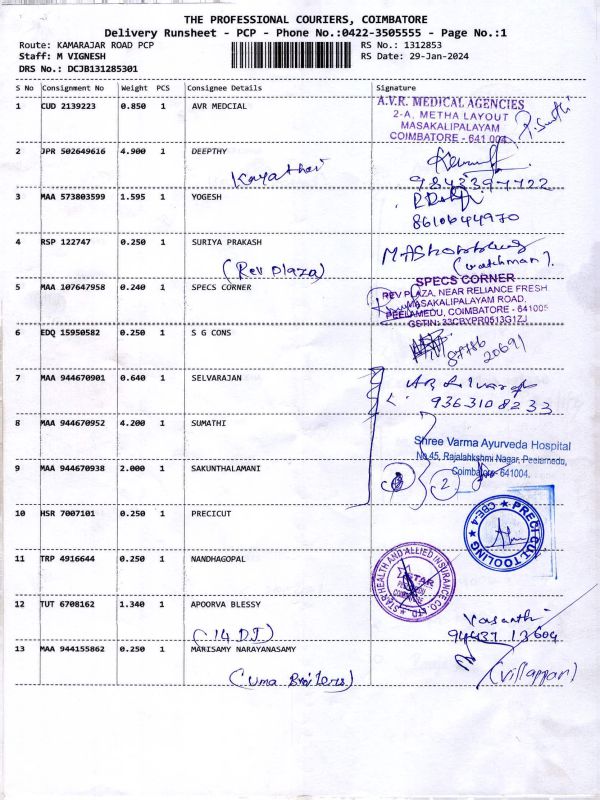 THE PROFESSIONAL COURIERS, COIMBATORE
Delivery Runsheet - PCP - Phone No.:0422-3505555 - Page No.:1
Route: KAMARAJAR ROAD PCP
RS No.: 1312853
Staff: M VIGNESH
RS Date: 29-Jan-2024
DRS No.: DCJB131285301
S No Consignment No Weight PCS Consignee Details Signature
1 CUD 2139223 0.850 1 AVR MEDCIAL
A.V.R. MEDICAL AGENCIES
2-A, METHA LAYOUT
MASAKALIPALAYAM
COIMBATORE - 641 004
2 JPR 502649616 4.900 1 DEEPTHY
9842397722
3 MAA 573803599 1.595 1 YOGESH
8610644970
4 RSP 122747 0.250 1 SURIYA PRAKASH
(Rev Plaza)
(watchman).
5 MAA 107647958 0.240 1 SPECS CORNER
SPECS CORNER
REV PLAZA, NEAR RELIANCE FRESH
MASAKALIPALAYAM ROAD,
PEELAMEDU, COIMBATORE - 641005
GSTIN: 33CBYPR0513G1ZJ
6 EDQ 15950582 0.250 1 S G CONS
87786
20691
7 MAA 944670901 0.640 1 SELVARAJAN
9363108233
8 MAA 944670952 4.200 1 SUMATHI
Shree Varma Ayurveda Hospital
No.45, Rajalahkshmi Nagar, Peelamedu,
Coimbatore- 641004.
9 MAA 944670938 2.000 1 SAKUNTHALAMANI
2
10 HSR 7007101 0.250 1 PRECICUT
PRECI CUT TOOLING
CBE-4
11 TRP 4916644 0.250 1 NANDHAGOPAL
STAR HEALTH AND ALLIED INSURANCE CO LTD
STAR
12 TUT 6708162 1.340 1 APOORVA BLESSY
(14 DJ)
Vasanthi
94437 13604
13 MAA 944155862 0.250 1 MARISAMY NARAYANASAMY
(Villappan)